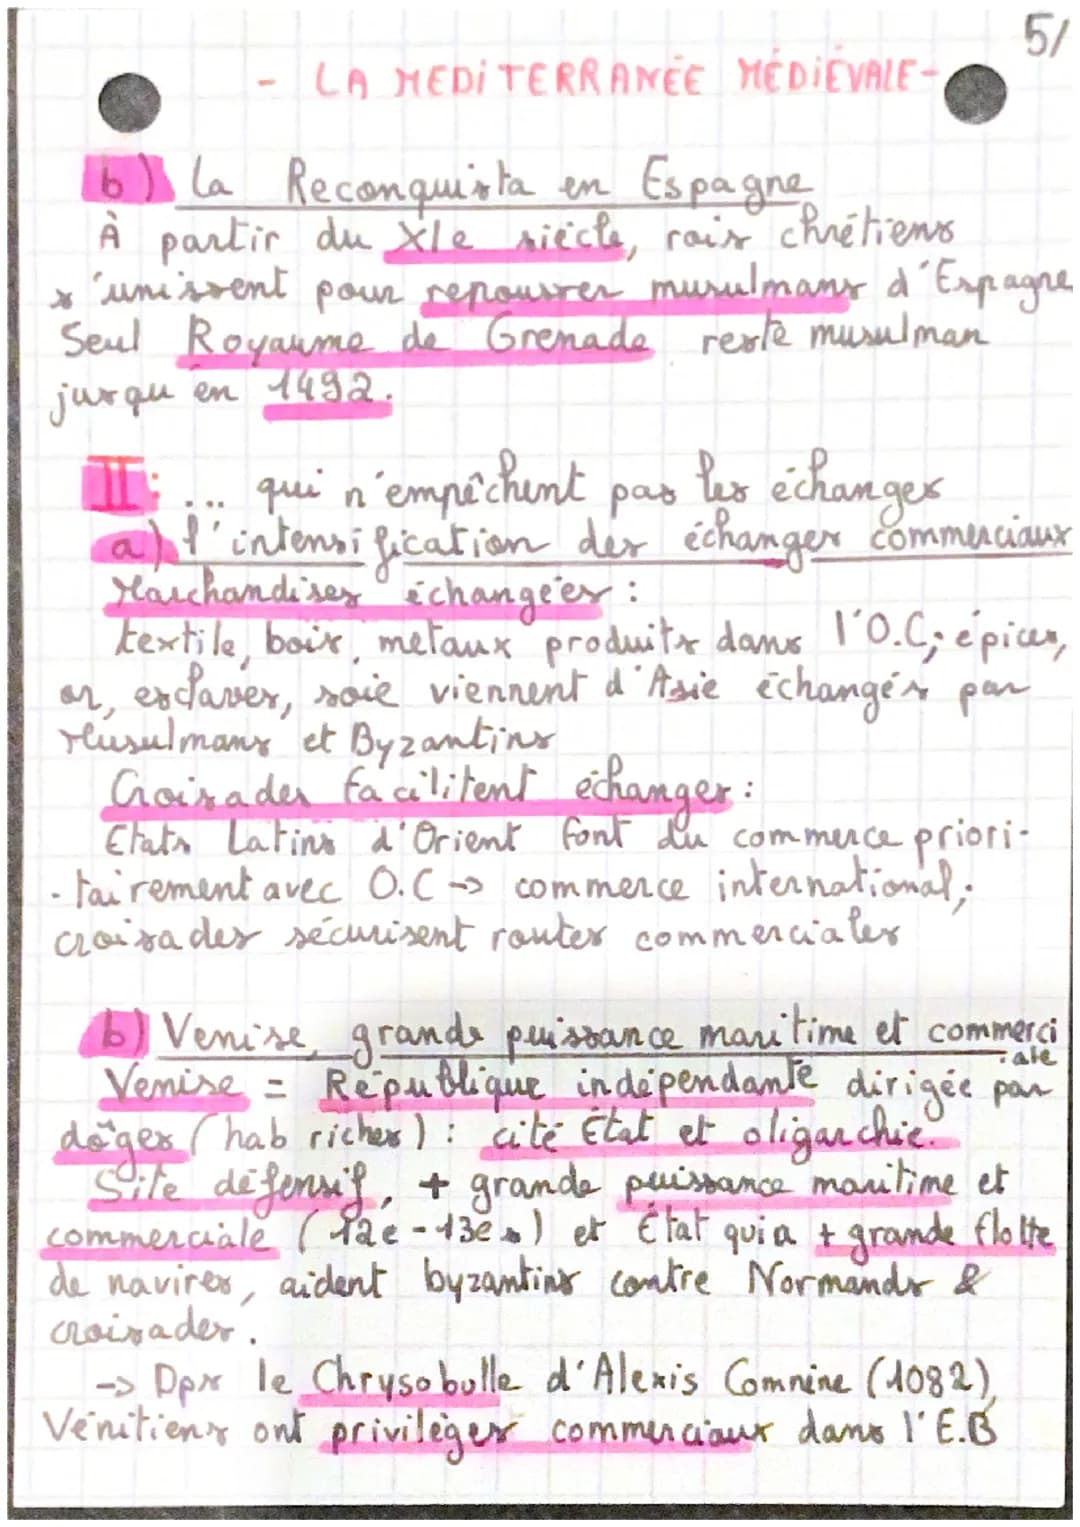 5/
- LA MEDITERRANÉE MÉDIÉVALE -
b) La Reconquista en Espagne
À partir du XIe siècle, rois chrétiens
s'unissent pour repousser musulmans d'Espagne
Seul Royaume de Grenade reste musulman
jusqu'en 1492.
II: ... qui n'empêchent pas les échanges
a) l'intensification des échanges commerciaux
Marchandises échangées :
textile, bois, métaux produits dans l'O.C; épices,
or, esclaves, soie viennent d'Asie échangés par
Musulmans et Byzantins
Croisades facilitent échanges :
Etats Latins d'Orient font du commerce priori-
-tairement avec O.C -> commerce international;
croisades sécurisent routes commerciales
b) Venise, grande puissance maritime et commerci
ale
Venise = République indépendante dirigée par
dôges (hab riches) : cité État et oligarchie.
Site défensif, + grande puissance maritime et
commerciale (12e-13e s) et État qui a + grande flotte
de navires, aident byzantins contre Normands &
croisades.
-> Dps le Chrysobulle d'Alexis Comnène (1082),
Vénitiens ont privilèges commerciaux dans l'E.B